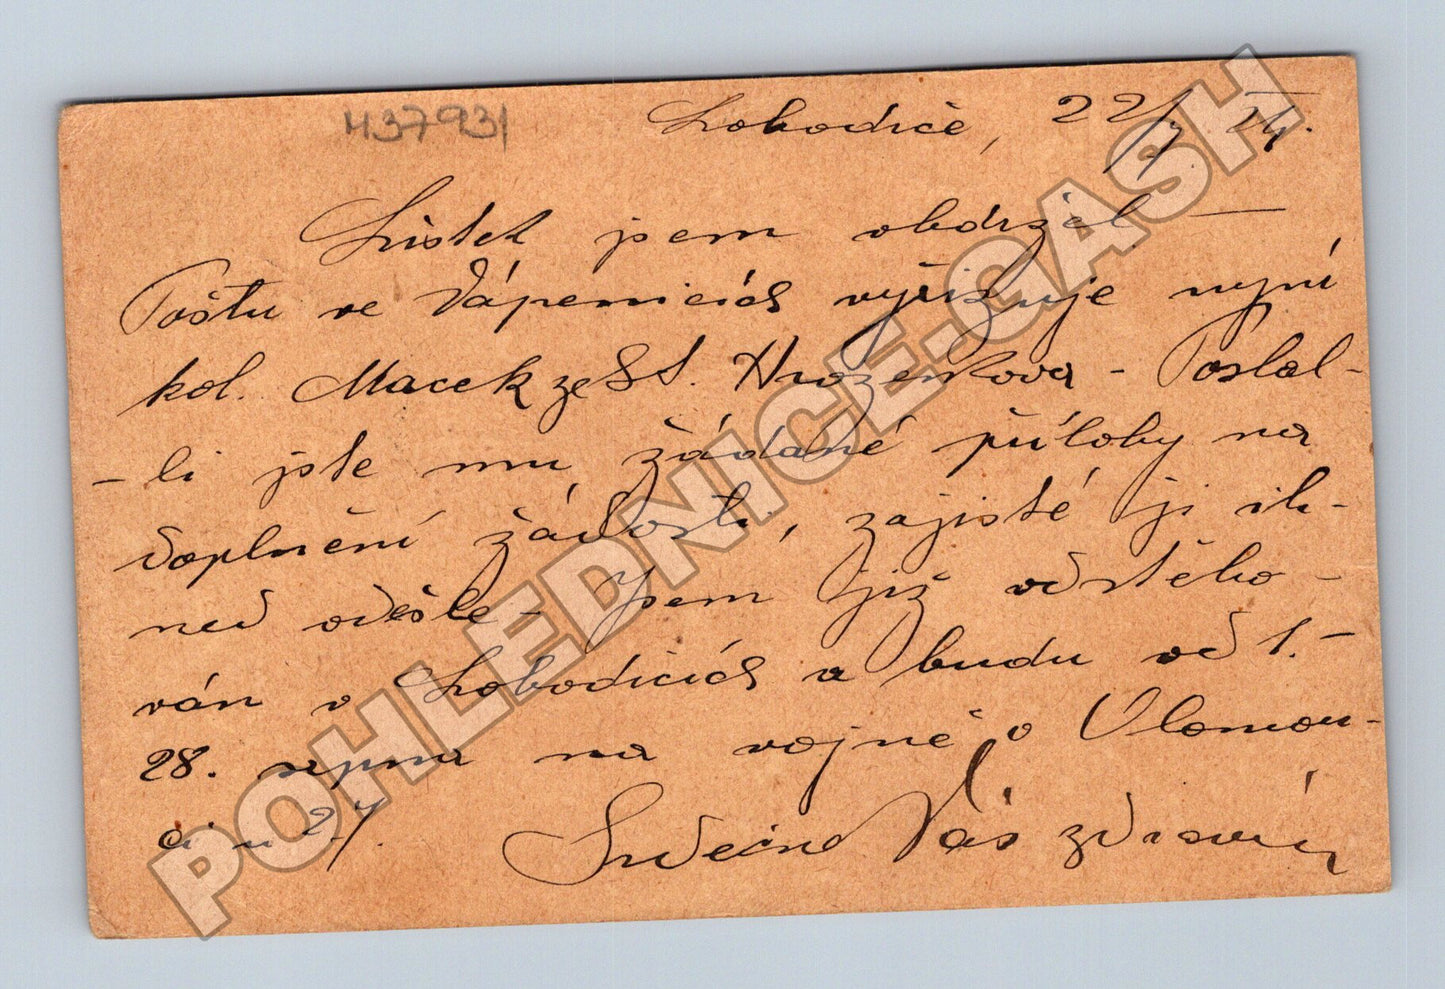 H37931
Lobodice, 22/7. 24.
Lístek jem obdržel. —
Poštu ve Vápenicích vyřizuje nyní
kol. Macek ze St. Hrozenkova - Poslal-
-li jste mu žádané přílohy na
doplnění žádosti, zajisté ji ih-
ned odešle - Jsem již odstěho-
ván v Lobodicích a budu od 1. -
28. srpna na vojně v Olomou-
ci u 27.
Srdečně Vás zdraví
POHLEDNICE-GASH